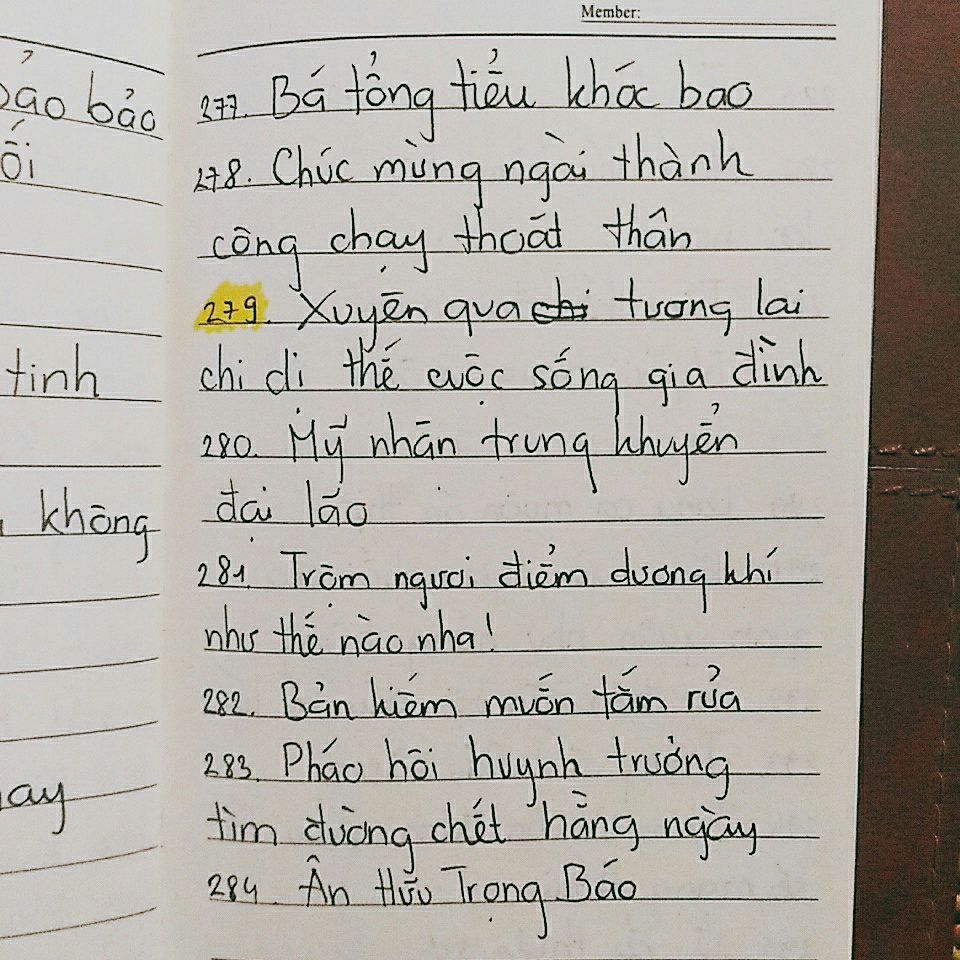 Member:
ảo bảo
ối
tinh
không
ay
277. Bá tổng tiểu khóc bao
278. Chúc mừng ngài thành
công chạy thoát thân
279. Xuyên qua chi tương lai
chi di thế cuộc sống gia đình
280. Mỹ nhân trung khuyển
đại lão
281. Trộm ngươi điểm dương khí
như thế nào nha!
282. Bản kiếm muốn tắm rửa
283. Pháo hôi huynh trưởng
tìm đường chết hằng ngày
284. Ân Hữu Trọng Báo